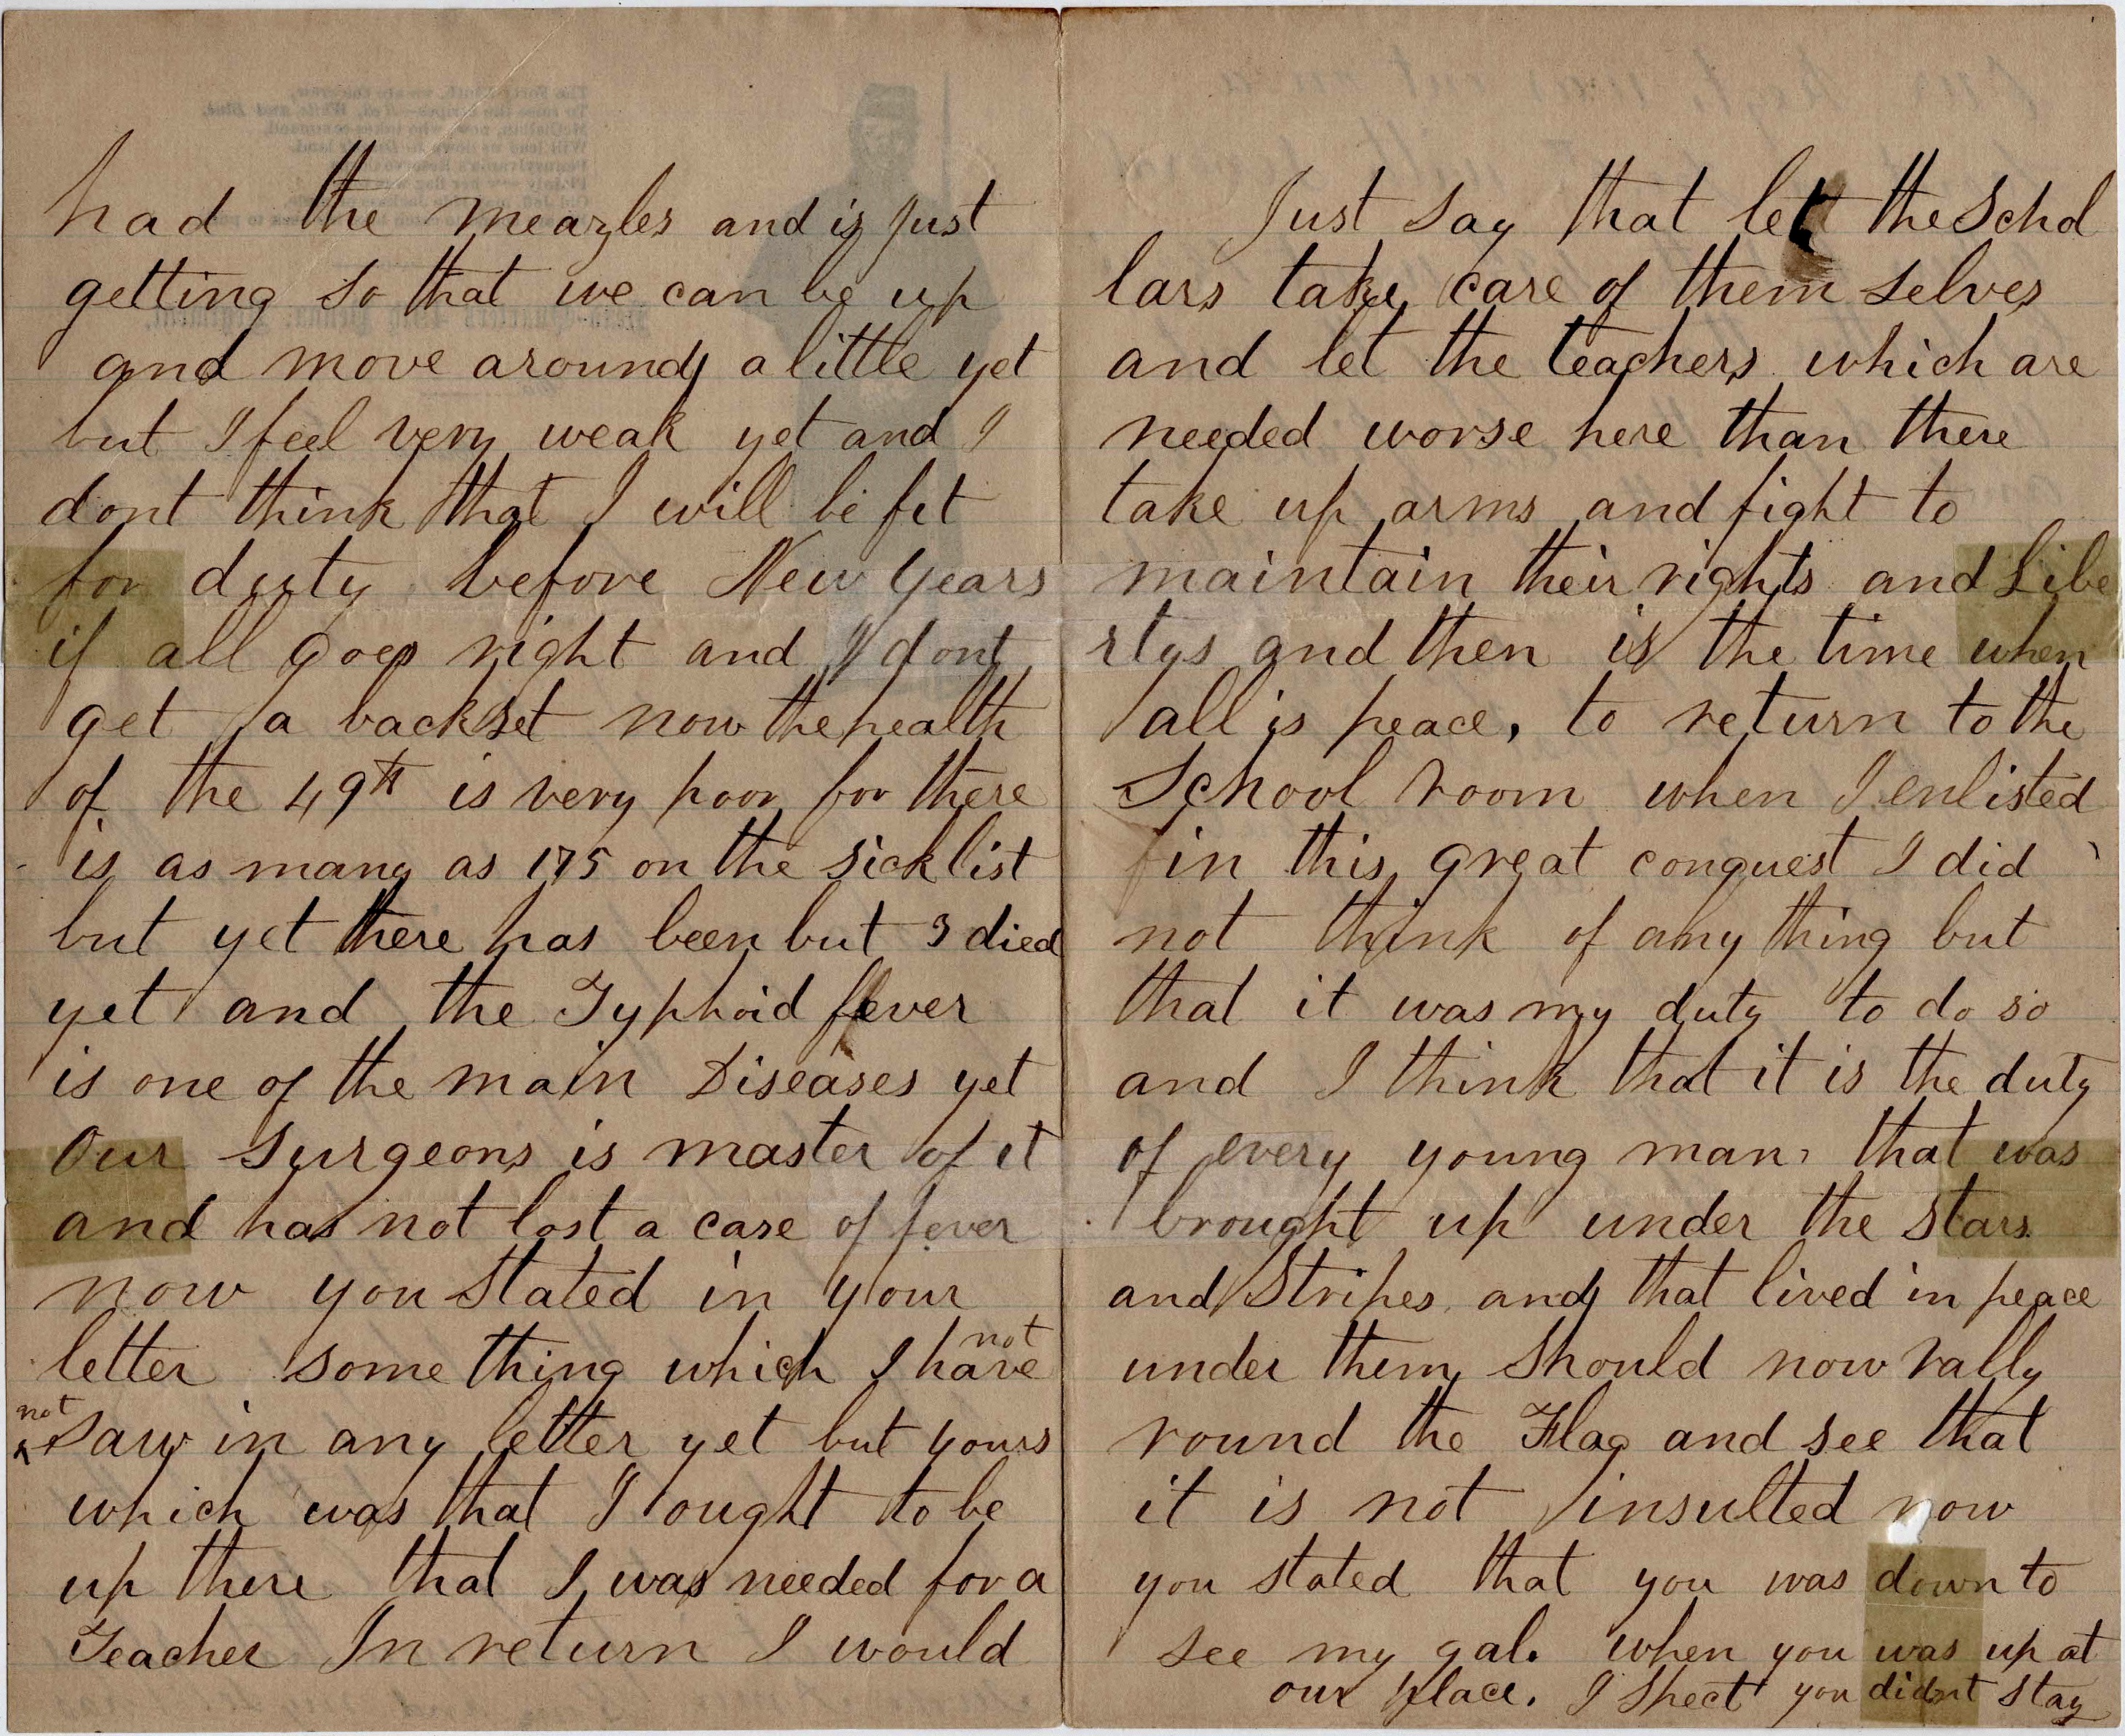 had the meazles and is just
getting so that we can be up
and move around a little yet
but I feel very weak yet and I
dont think that I will be fit
for duty before New Years
if all goes right and I dont
get a backset now the health
of the 49th is very poor for there
is as many as 175 on the sick list
but yet there has been but 3 died
yet and the Typhoid fever
is one of the main Diseases yet
Our Surgeons is master of it
and has not lost a case of fever
now you stated in your
letter some thing which I have not
not saw in any letter yet but yours
which was that I ought to be
up there that I was needed for a
Teacher In return I would
Just say that let the Schol
lars take care of them selves
and let the teachers which are
needed worse here than there
take up arms and fight to
maintain their rights and Libe
rtys and then is the time when
all is peace, to return to the
School room when I enlisted
in this great conquest I did
not think of any thing but
that it was my duty to do so
and I think that it is the duty
of every young man that was
brought up under the stars
and Stripes and that lived in peace
under them should now rally
round the Flag and see that
it is not insulted now
you stated that you was down to
see my gal. when you was up at
our place. I spect you didnt stay